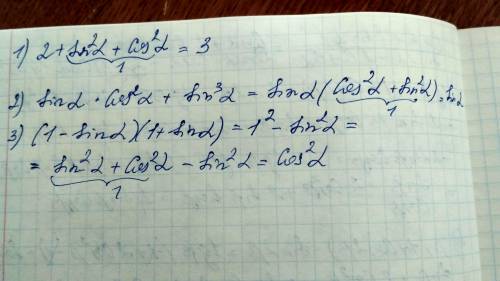 1) 2 + sin²α + cos²α = 3
1
2) sinα · cos²α + sin³α = sinα (cos²α + sin²α) = sinα
1
3) (1 - sinα)(1 + sinα) = 1² - sin²α =
= sin²α + cos²α - sin²α = cos²α
1